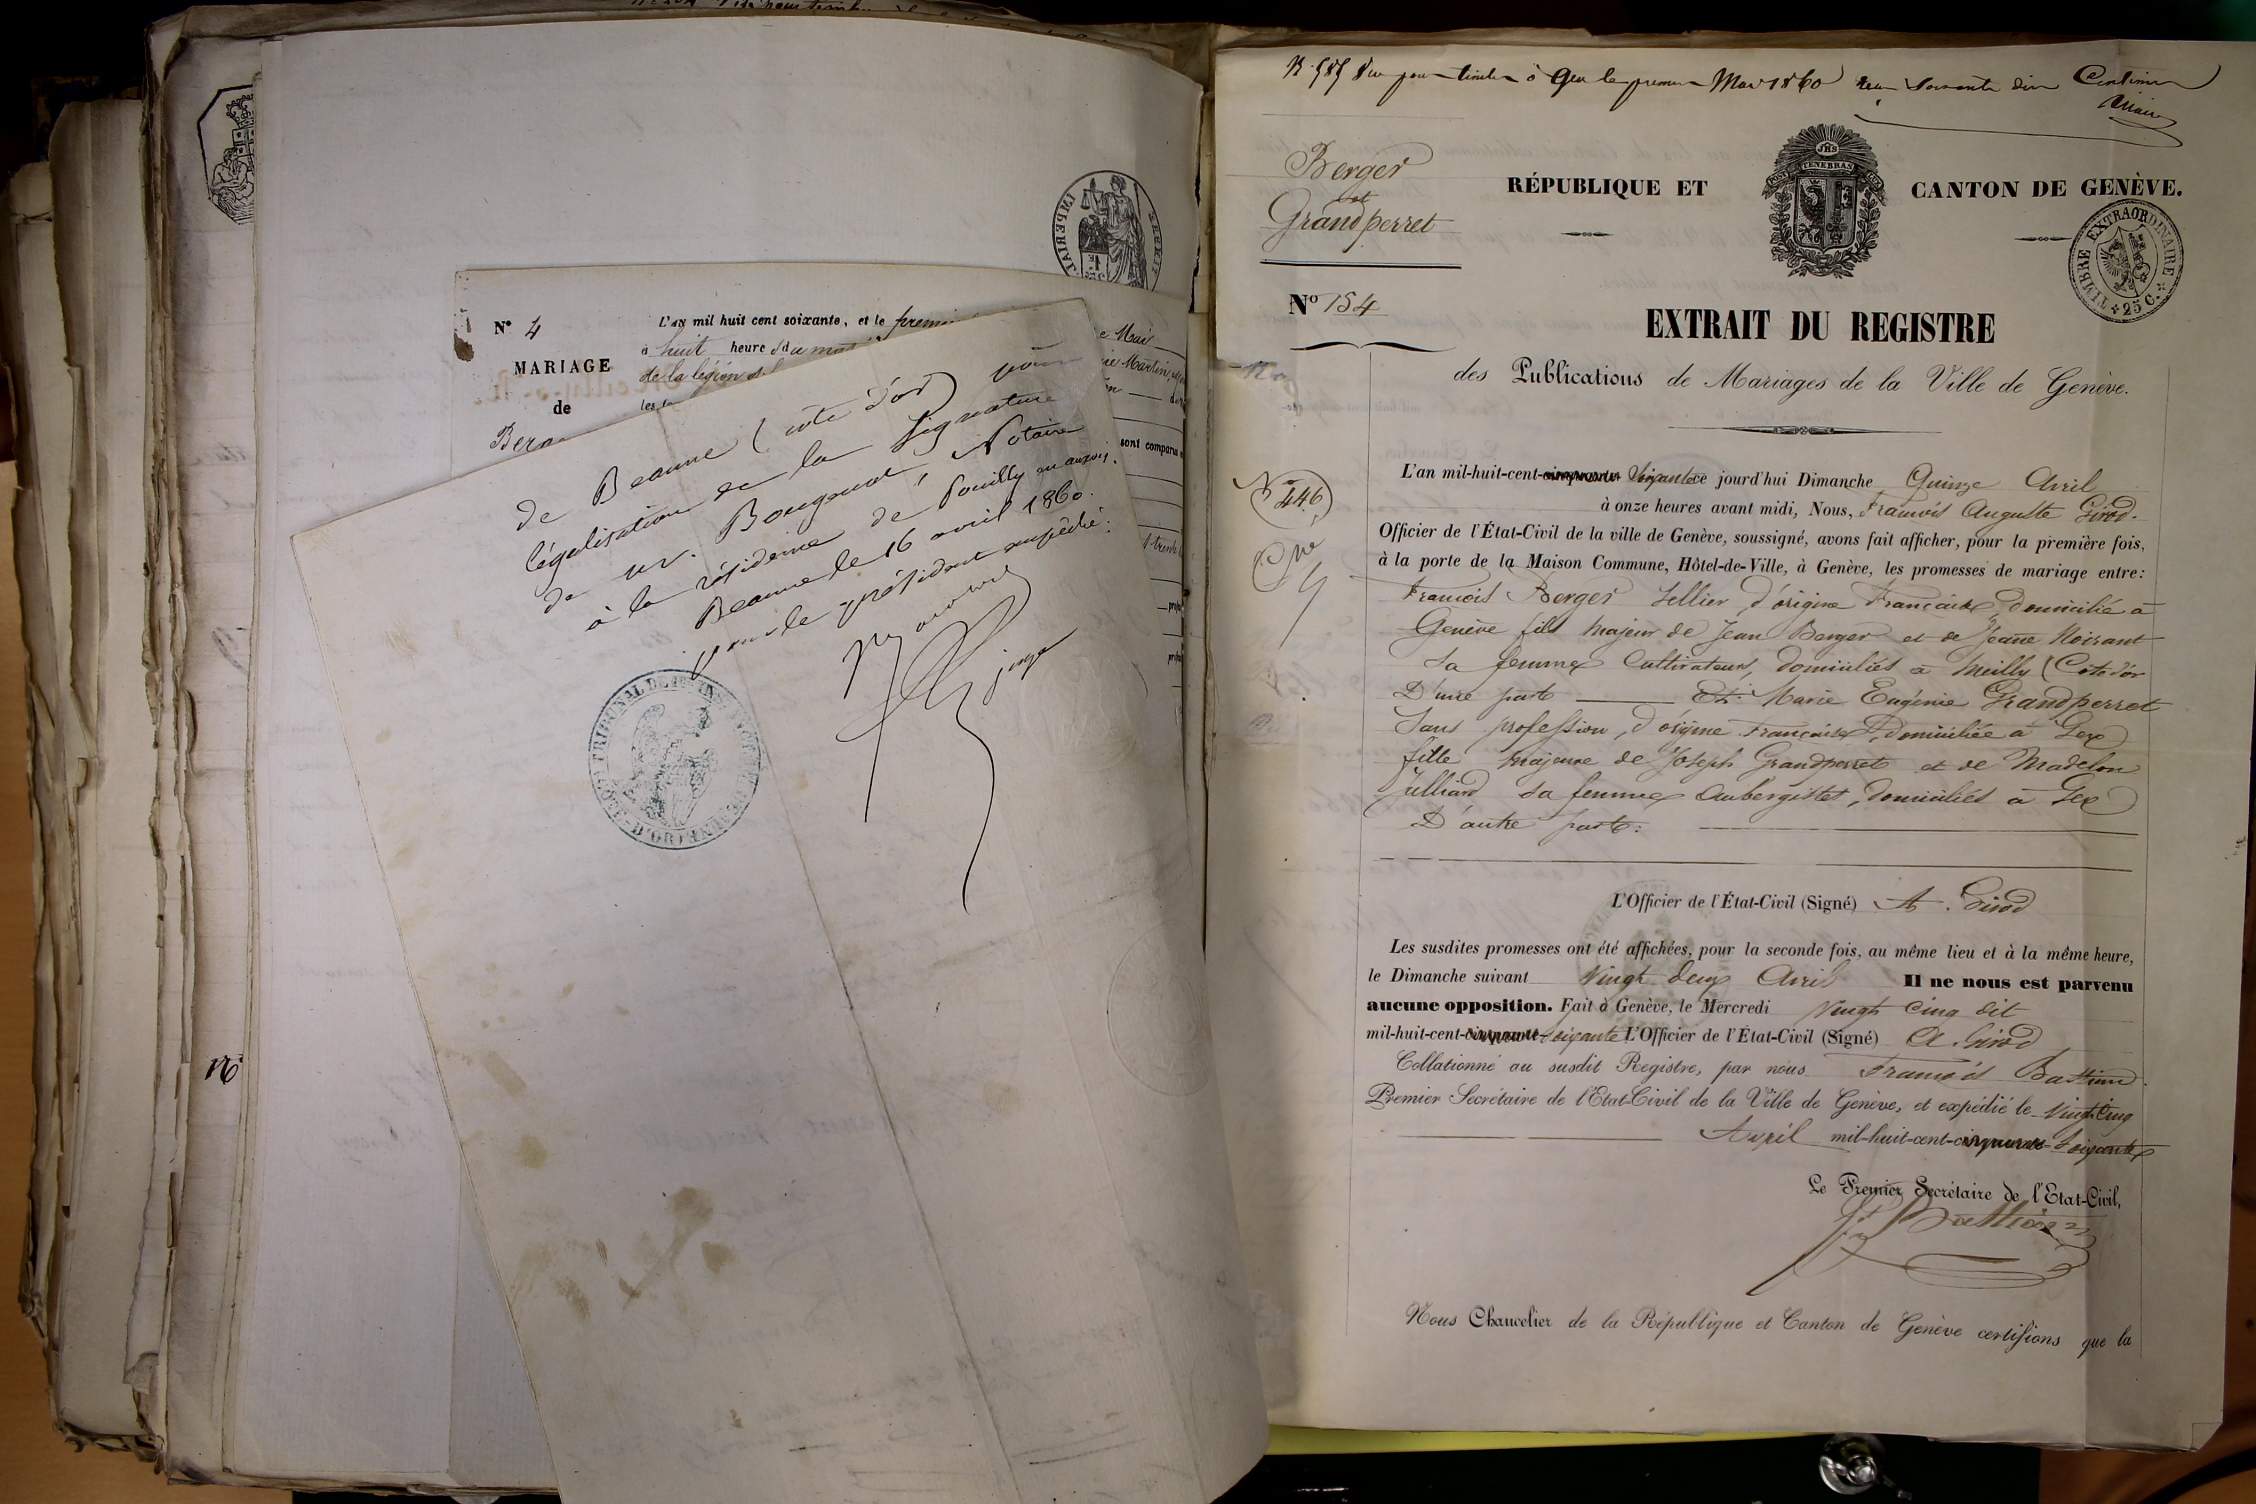 N° 4
MARIAGE
de
L'AN mil huit cent soixante, et le
à huit heure
de la légion
e Mai
Martin
sont comparu
de Beaune (Côte d'or) pour
légalisation de la signature
de mr. Bougenot, Notaire
à la résidence de Pouilly en auxois.
Beaune le 16 avril 1860.
pour le président empêché:
juge
TRIBUNAL DE 1ERE INSTANCE
CÔTE-D'OR
IMPERIAL
Vu pour timbre à Gex le premier Mai 1860 soixante dix Centimes
Berger
et
Grandperret
N° 154
RÉPUBLIQUE ET CANTON DE GENÈVE.
JHS
POST TENEBRAS LUX
TIMBRE EXTRAORDINAIRE
25 C.
EXTRAIT DU REGISTRE
des Publications de Mariages de la Ville de Genève.
N° 446
L'an mil-huit-cent-cinquante Soixante ce jourd'hui Dimanche Quinze Avril
à onze heures avant midi, Nous, François Auguste Girod.
Officier de l'État-Civil de la ville de Genève, soussigné, avons fait afficher, pour la première fois,
à la porte de la Maison Commune, Hôtel-de-Ville, à Genève, les promesses de mariage entre:
François Berger Sellier, d'origine Française, domicilié à
Genève fils majeur de Jean Berger et de Jeane Noirant
sa femme Cultivateurs, domiciliés à Meilly (Cote d'or
D'une part Et Marie Eugénie Grandperret
Sans profession, d'origine Française, domiciliée à Gex
fille majeure de Joseph Grandperret et de Madelon
Julliard sa femme Aubergistes, domiciliés à Gex
D'autre part:
L'Officier de l'État-Civil (Signé) A. Girod
Les susdites promesses ont été affichées, pour la seconde fois, au même lieu et à la même heure,
le Dimanche suivant Vingt deux Avril Il ne nous est parvenu
aucune opposition. Fait à Genève, le Mercredi Vingt Cinq dit
mil-huit-cent-cinquante-Soixante L'Officier de l'État-Civil (Signé) A. Girod
Collationné au susdit Registre, par nous François Bastian
Premier Secrétaire de l'Etat-Civil de la Ville de Genève, et expédié le Vingt Cinq
Avril mil-huit-cent-cinquante-Soixante
Le Premier Secrétaire de l'Etat-Civil,
Fs Bastian
Nous Chancelier de la République et Canton de Genève certifions que la